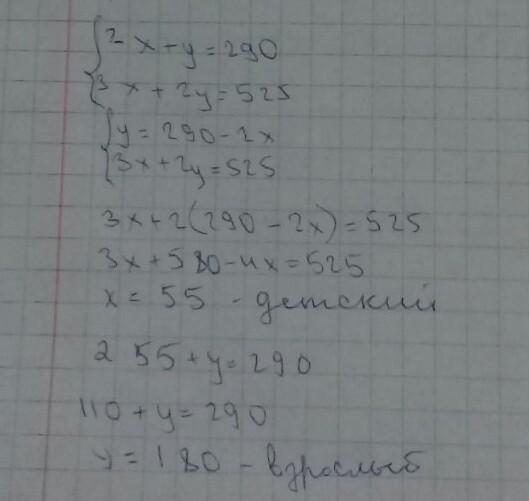 {2x+y=290
{3x+2y=525
{y=290-2x
{3x+2y=525
3x+2(290-2x)=525
3x+580-4x=525
x=55 - детский
2 55+y=290
110+y=290
y=180 - взрослыб